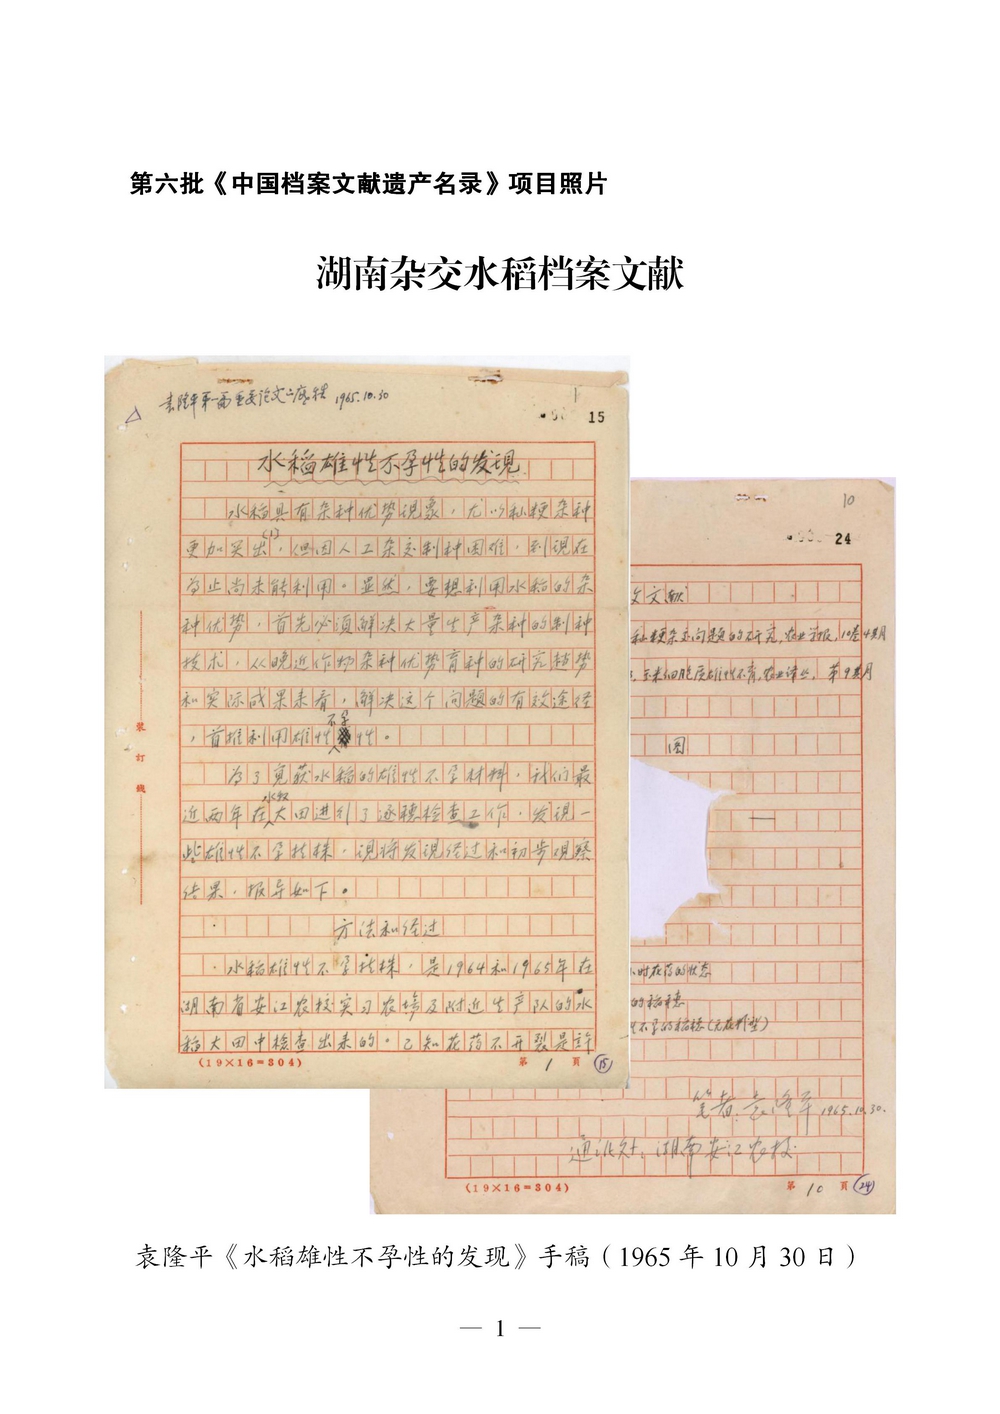 第六批《中国档案文献遗产名录》项目照片
湖南杂交水稻档案文献
袁隆平第一篇重要论文之底稿 1965.10.30
15
水稻雄性不孕性的发现
水稻具有杂种优势现象，尤以籼粳杂种
更加突出(1)，但因人工杂交制种困难，到现在
为止尚未能利用。显然，要想利用水稻的杂
种优势，首先必须解决大量生产杂种的制种
技术，从晚近作物杂种优势育种的研究趋势
和实际成果来看，解决这个问题的有效途径
，首推利用雄性不孕性。
为了觅获水稻的雄性不孕材料，我们最
近两年在水稻大田进行了逐穗检查工作，发现一
些雄性不孕植株，现将发现经过和初步观察
结果，报导如下。
方法和经过
水稻雄性不孕植株，是1964和1965年在
湖南省安江农校实习农场及附近生产队的水
稻大田中检查出来的。已知花药不开裂是許
装订线
(19×16=304)
第 1 頁
15
10
24
文献
籼粳杂交问题的研究，农业 10卷4期
玉米细胞质雄性不育，农业译丛，第9期
图
一
时花药的状态
的稻穗
不孕的稻穗（无花粉型）
笔者 袁隆平 1965.10.30.
通讯处：湖南安江农校
(19×16=304)
第 10 頁
24
袁隆平《水稻雄性不孕性的发现》手稿（1965 年 10 月 30 日）
— 1 —